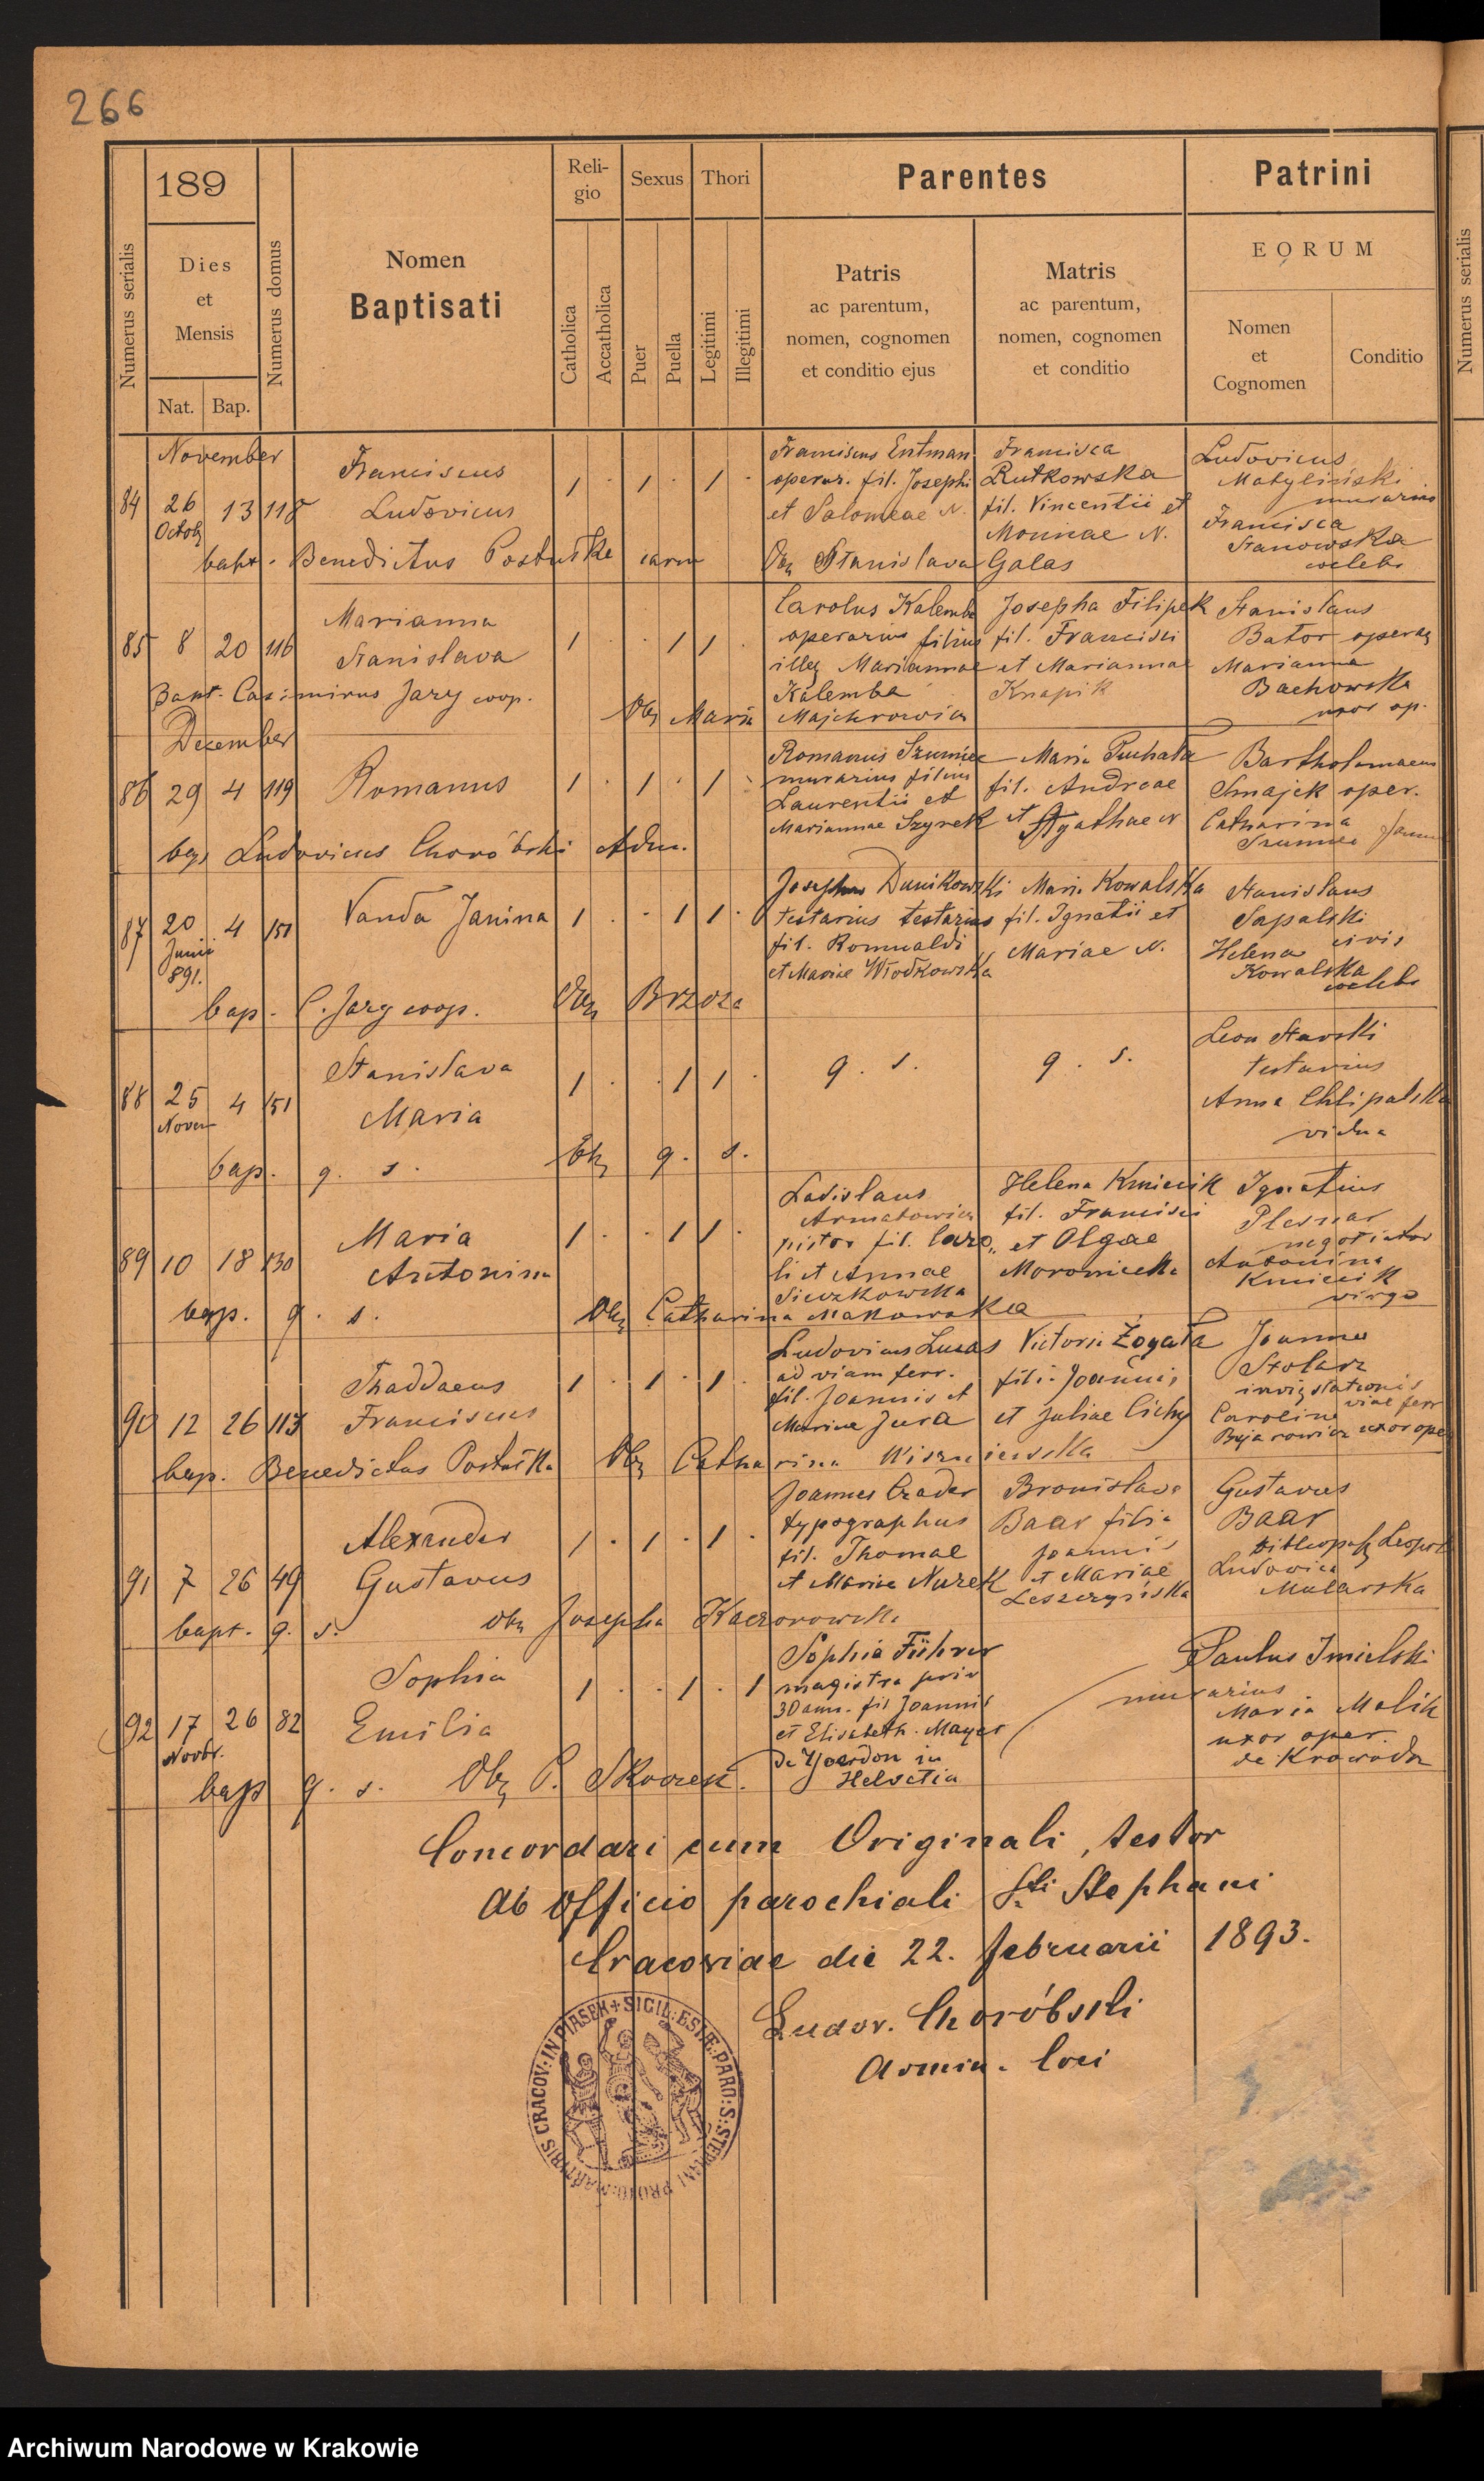 266
189
Numerus serialis
Dies
et
Mensis
Nat. Bap.
Numerus domus
Nomen
Baptisati
Reli-
gio
Catholica
Accatholica
Sexus
Puer
Puella
Thori
Legitimi
Illegitimi
Parentes
Patris
ac parentum,
nomen, cognomen
et conditio ejus
Matris
ac parentum,
nomen, cognomen
et conditio
Patrini
EORUM
Nomen
et
Cognomen
Conditio
Numerus serialis
November
84 26 13 118
Octob
Franciscus
Ludovicus
1 . 1 . 1 .
Franciscus Entman
operar. fil. Josephi
et Salomeae N.
Francisca
Rutkowska
fil. Vincentii et
Monicae N.
Ludovicus
Matyliński
murarius
Francisca
Stanowska
coelebs
bapt. Benedictus Postuśka Obs Stanislava Galas
85 8 20 116
Marianna
Stanislava
1 . . 1 1 .
Carolus Kalemba
operarius filius
illeg Mariannae
Kalemba
Josepha Filipek
fil. Francisci
et Mariannae
Knapik
Stanislaus
Bator operar
Marianna
Bachowska
uxor op.
Bapt. Casimirus Jary coop. Obs Maria Majchrowicz
December
86 29 4 119
Romanus
1 . 1 . 1 .
Romanus Szumiec
murarius filius
Laurentii et
Mariannae Szyrek
Maria Puchała
fil. Andreae
et Agathae N
Bartholomaeus
Smajek oper.
Catharina
Szumiec
bap Ludovicus Choróbski Adm.
87 20 4 151
Junii
891.
Vanda Janina
1 . . 1 1 .
Josephus Dunikowski
testarius testarius
fil. Romualdi
et Mariae Włodkowska
Maria Kowalska
fil. Ignatii et
Mariae N.
Stanislaus
Sapalski
civis
Helena
Kowalska
coelebs
bap. C. Jary coop. Obs Brzoza
88 25 4 151
Novem
Stanislava
Maria
1 . . 1 1 .
q. s.
q. s.
Leon Stavski
testarius
Anna Chlipalska
vidua
bap. q. s. Obs q. s.
89 10 18 130
Maria
Antonina
1 . . 1 1 .
Ladislaus
Armatowicz
pistor fil. Caro„
li et Annae
Sieczkowska
Helena Kmiecik
fil. Francisci
et Olgae
Moromiecka
Ignatius
Plesnar
negotiator
Antonina
Kmiecik
virgo
bap. q. s. Obs Catharina Makowska
90 12 26 113
Thaddaeus
Franciscus
1 . 1 . 1 .
Ludovicus Lucas
ad viam ferr.
fil. Joannis et
Mariae Jura
Victoria Żogała
filia Joannis
et Juliae Cichy
Joannes
Stolarz
stationis
viae ferr
Carolina
Bujarowicz uxor oper
bap. Benedictus Postuśka Obs Catharina Wiszniewska
91 7 26 49
Alexander
Gustavus
1 . 1 . 1 .
Joannes Czader
typographus
fil. Thomae
et Mariae Nurek
Bronislava
Baar filia
Joannis
et Mariae
Leszczyńska
Gustavus
Baar
Ludovica
Mularska
bapt. q. s. Obs Josepha Kaczorowska
92 17 26 82
Novbr.
Sophia
Emilia
1 . . 1 . 1
Sophia Führer
magistra priv
30 ann. fil Joannis
et Elisabeth. Mayer
de Yverdon in
Helvetia
Paulus Imielski
murarius
Maria Malik
uxor oper.
de Krowodrza
bap q. s. Obs P. Skowron.
Concordari cum Originali, testor
Ab officio parochiali Sti Stephani
Cracoviae die 22. februarii 1893.
Ludov. Choróbski
Admin. loci
SIGIL: ESIÆ: PARO: S: STEPHANI PROTO-MARTYRIS CRACOV: IN PIASEK
Archiwum Narodowe w Krakowie